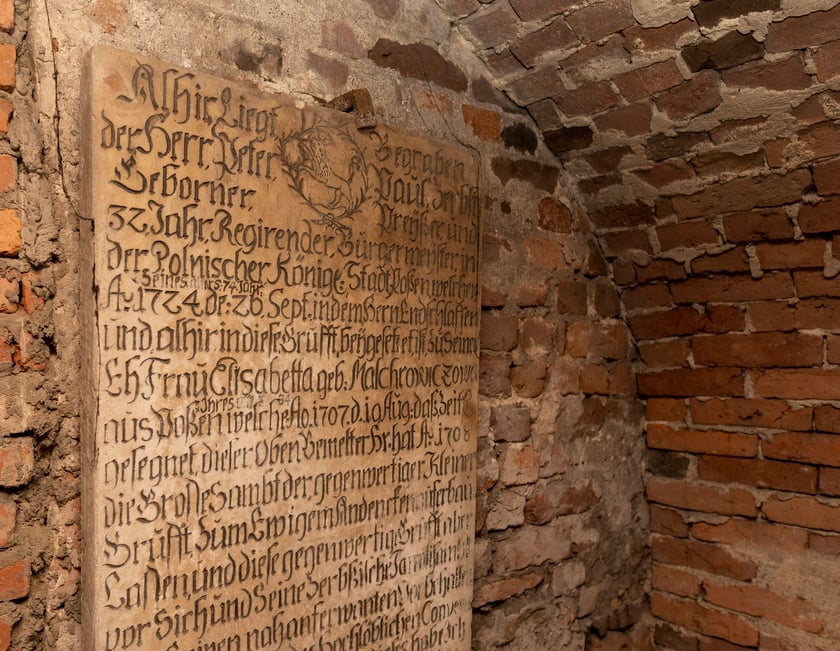 Alhir, Liegt, Begraben
der Herr, Peter, Paul, der
Geborner, Preysse und
32. Jahr, Regirender, Burgermeister in
der Polnischer Könige Stadt Possen welcher
Seines alters: 74 Jahr,
A: 1724. de: 26. Sept. in dem Hern Endschlaffen
und alhir in diese Grufft, beygesetzet ist, zu Seiner
Eh Frau Elisabetta geb: Malchrowiczowa
Ihres
aus Possen welche Ao. 1707. d. 19 Aug: daß Zeitl:
gesegnet, dieser Oben Bemelter Hr. hat A: 1708
die Große Sambt der gegenwertiger Kleiner
Grufft Zum Ewigem Andencken auferbau
Lassen, und diese gegenwertig Grufft aber
vor Sich und Seine
nahanferwanten Vorbehalten
Hochlöblichen Conven